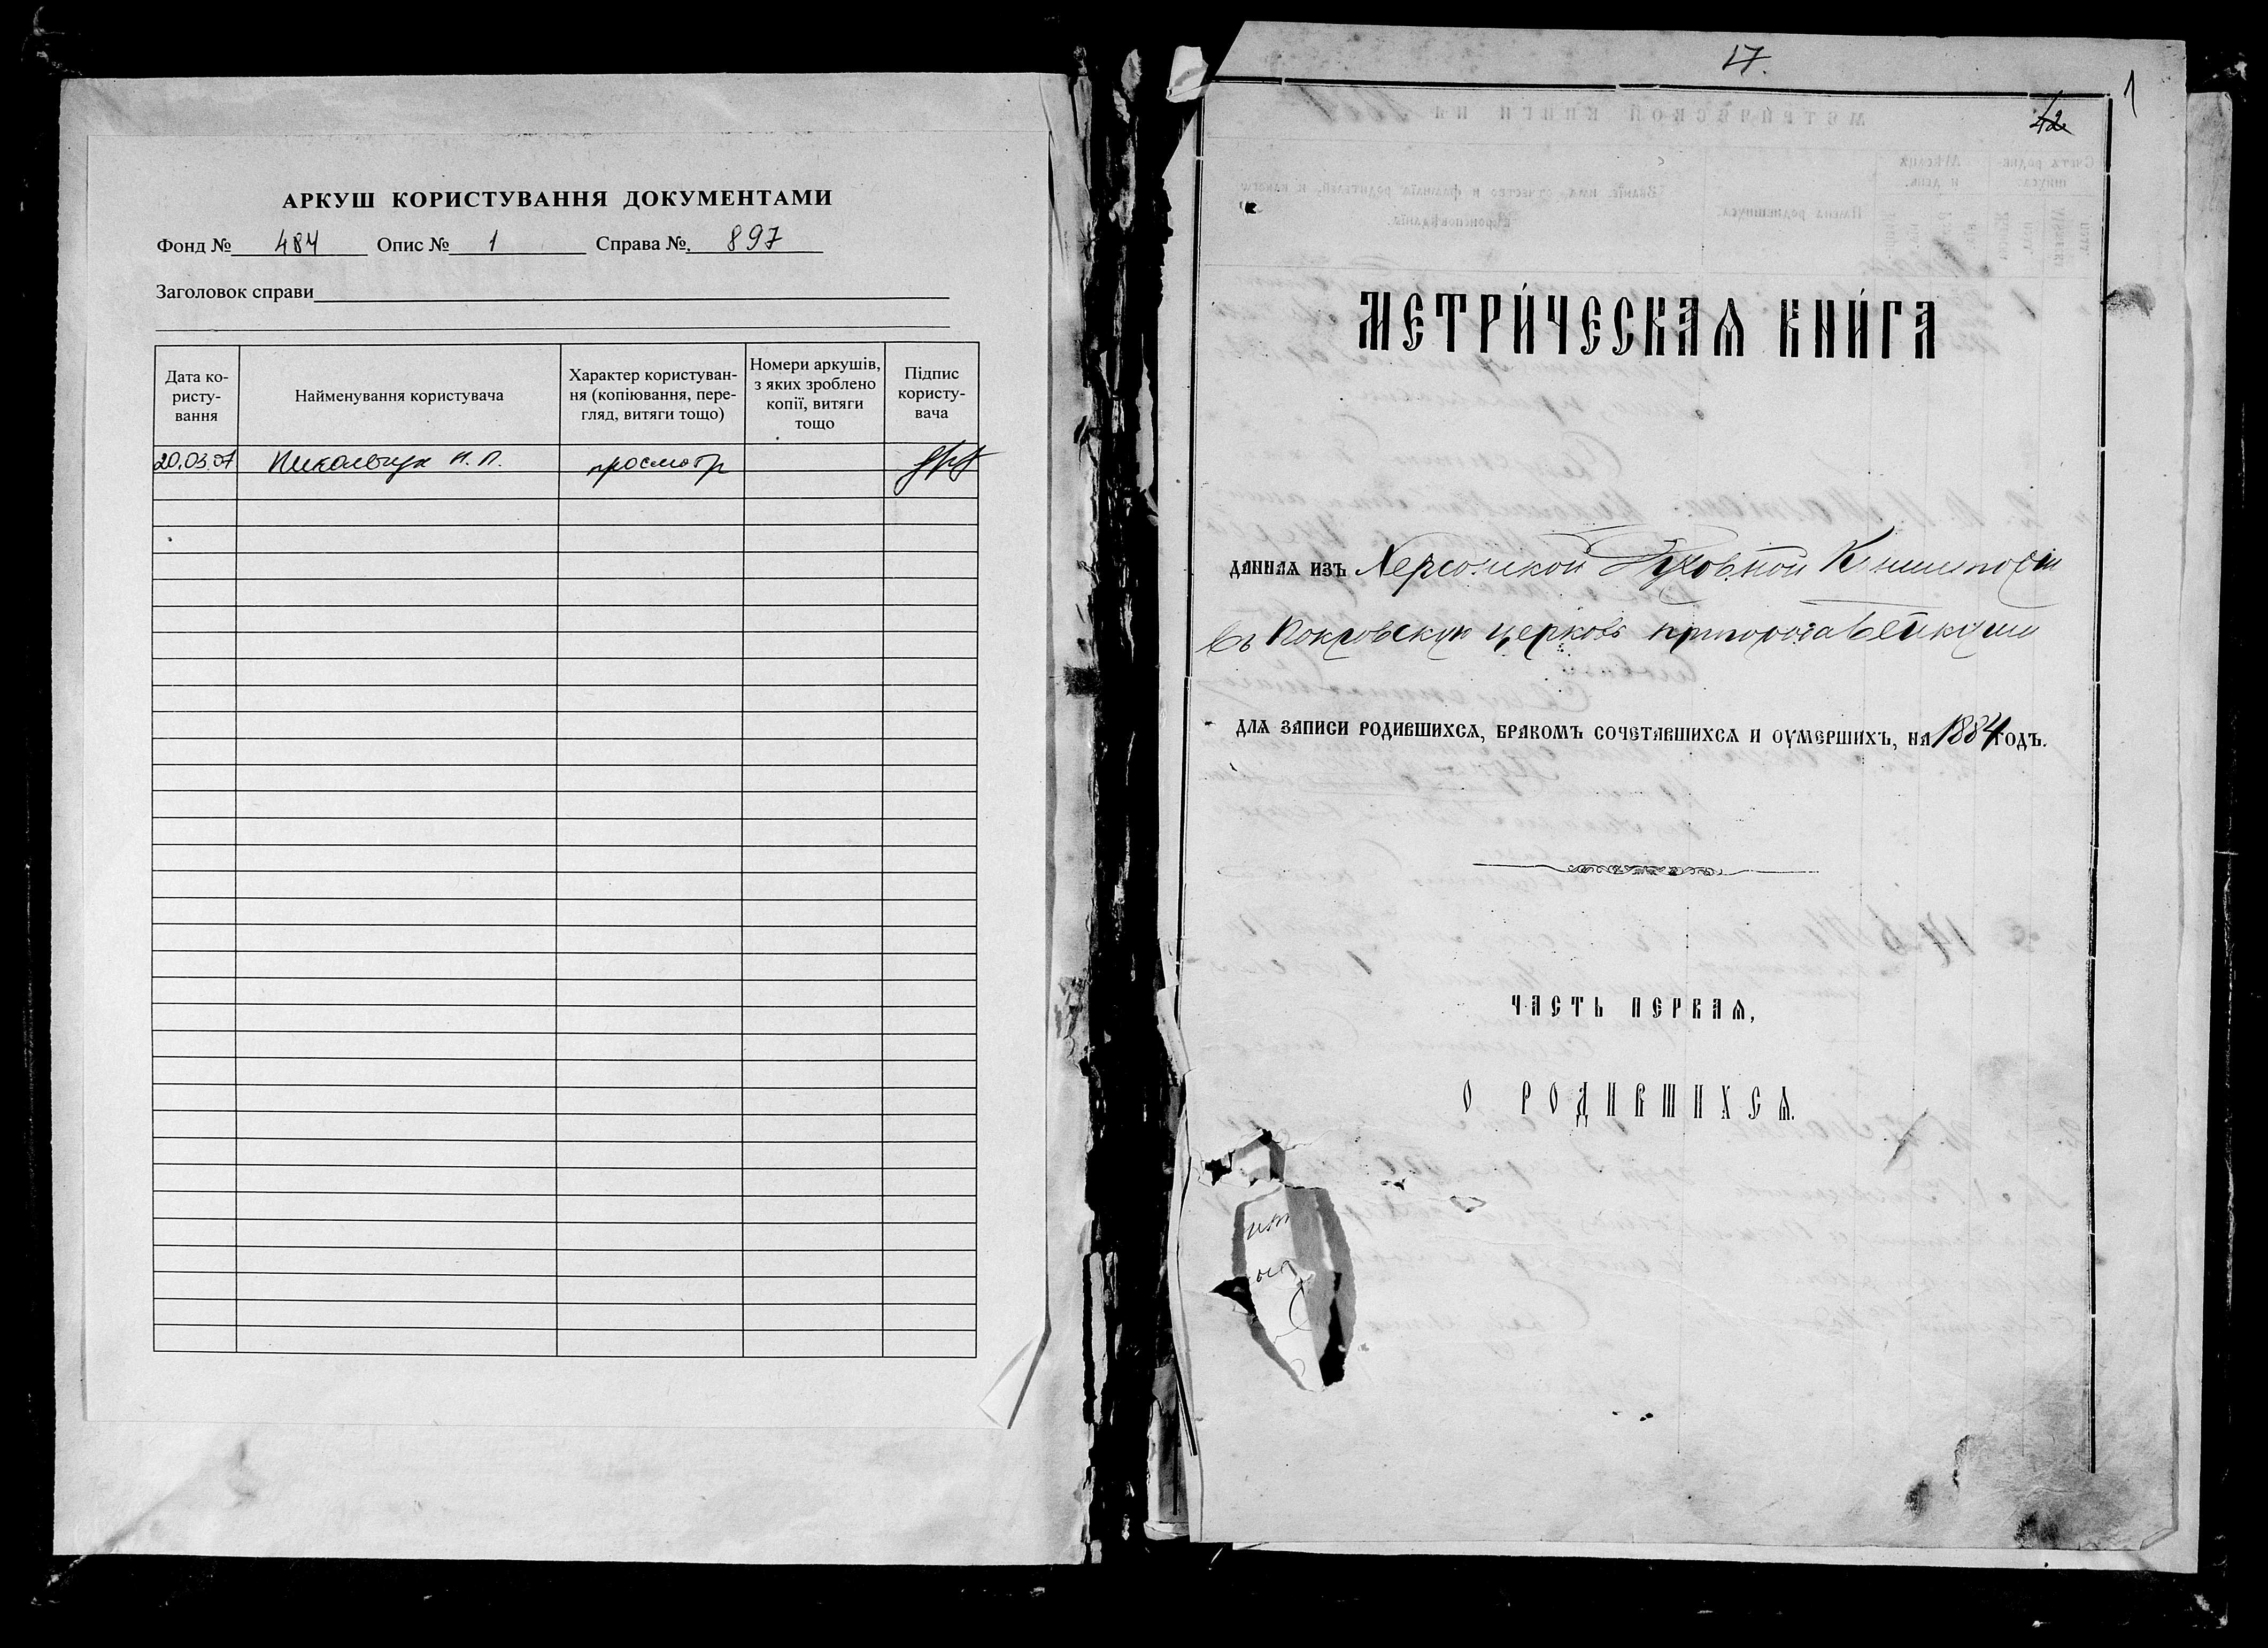 АРКУШ КОРИСТУВАННЯ ДОКУМЕНТАМИ
Фонд № 484 Опис № 1 Справа № 897
Заголовок справи
Дата ко-
ристу-
вання
Найменування користувача
Характер користуван-
ня (копіювання, пере-
гляд, витяги тощо)
Номери аркушів,
з яких зроблено
копії, витяги
тощо
Підпис
користу-
вача
20.03.07 просмотр
17.
1
42
МЕТРИ́ЧЕСКАѦ КНИ́ГА
даннаѧ изъ Херсонской Духовной Консисторіи
въ Покровскую церковь пригорода Бейкуши
длѧ записи родившихсѧ, бракомъ сочетавшихсѧ и оумершихъ, на 1884 годъ.
ЧАСТЬ ПЕРВАѦ,
О РОДИВШИХСѦ.